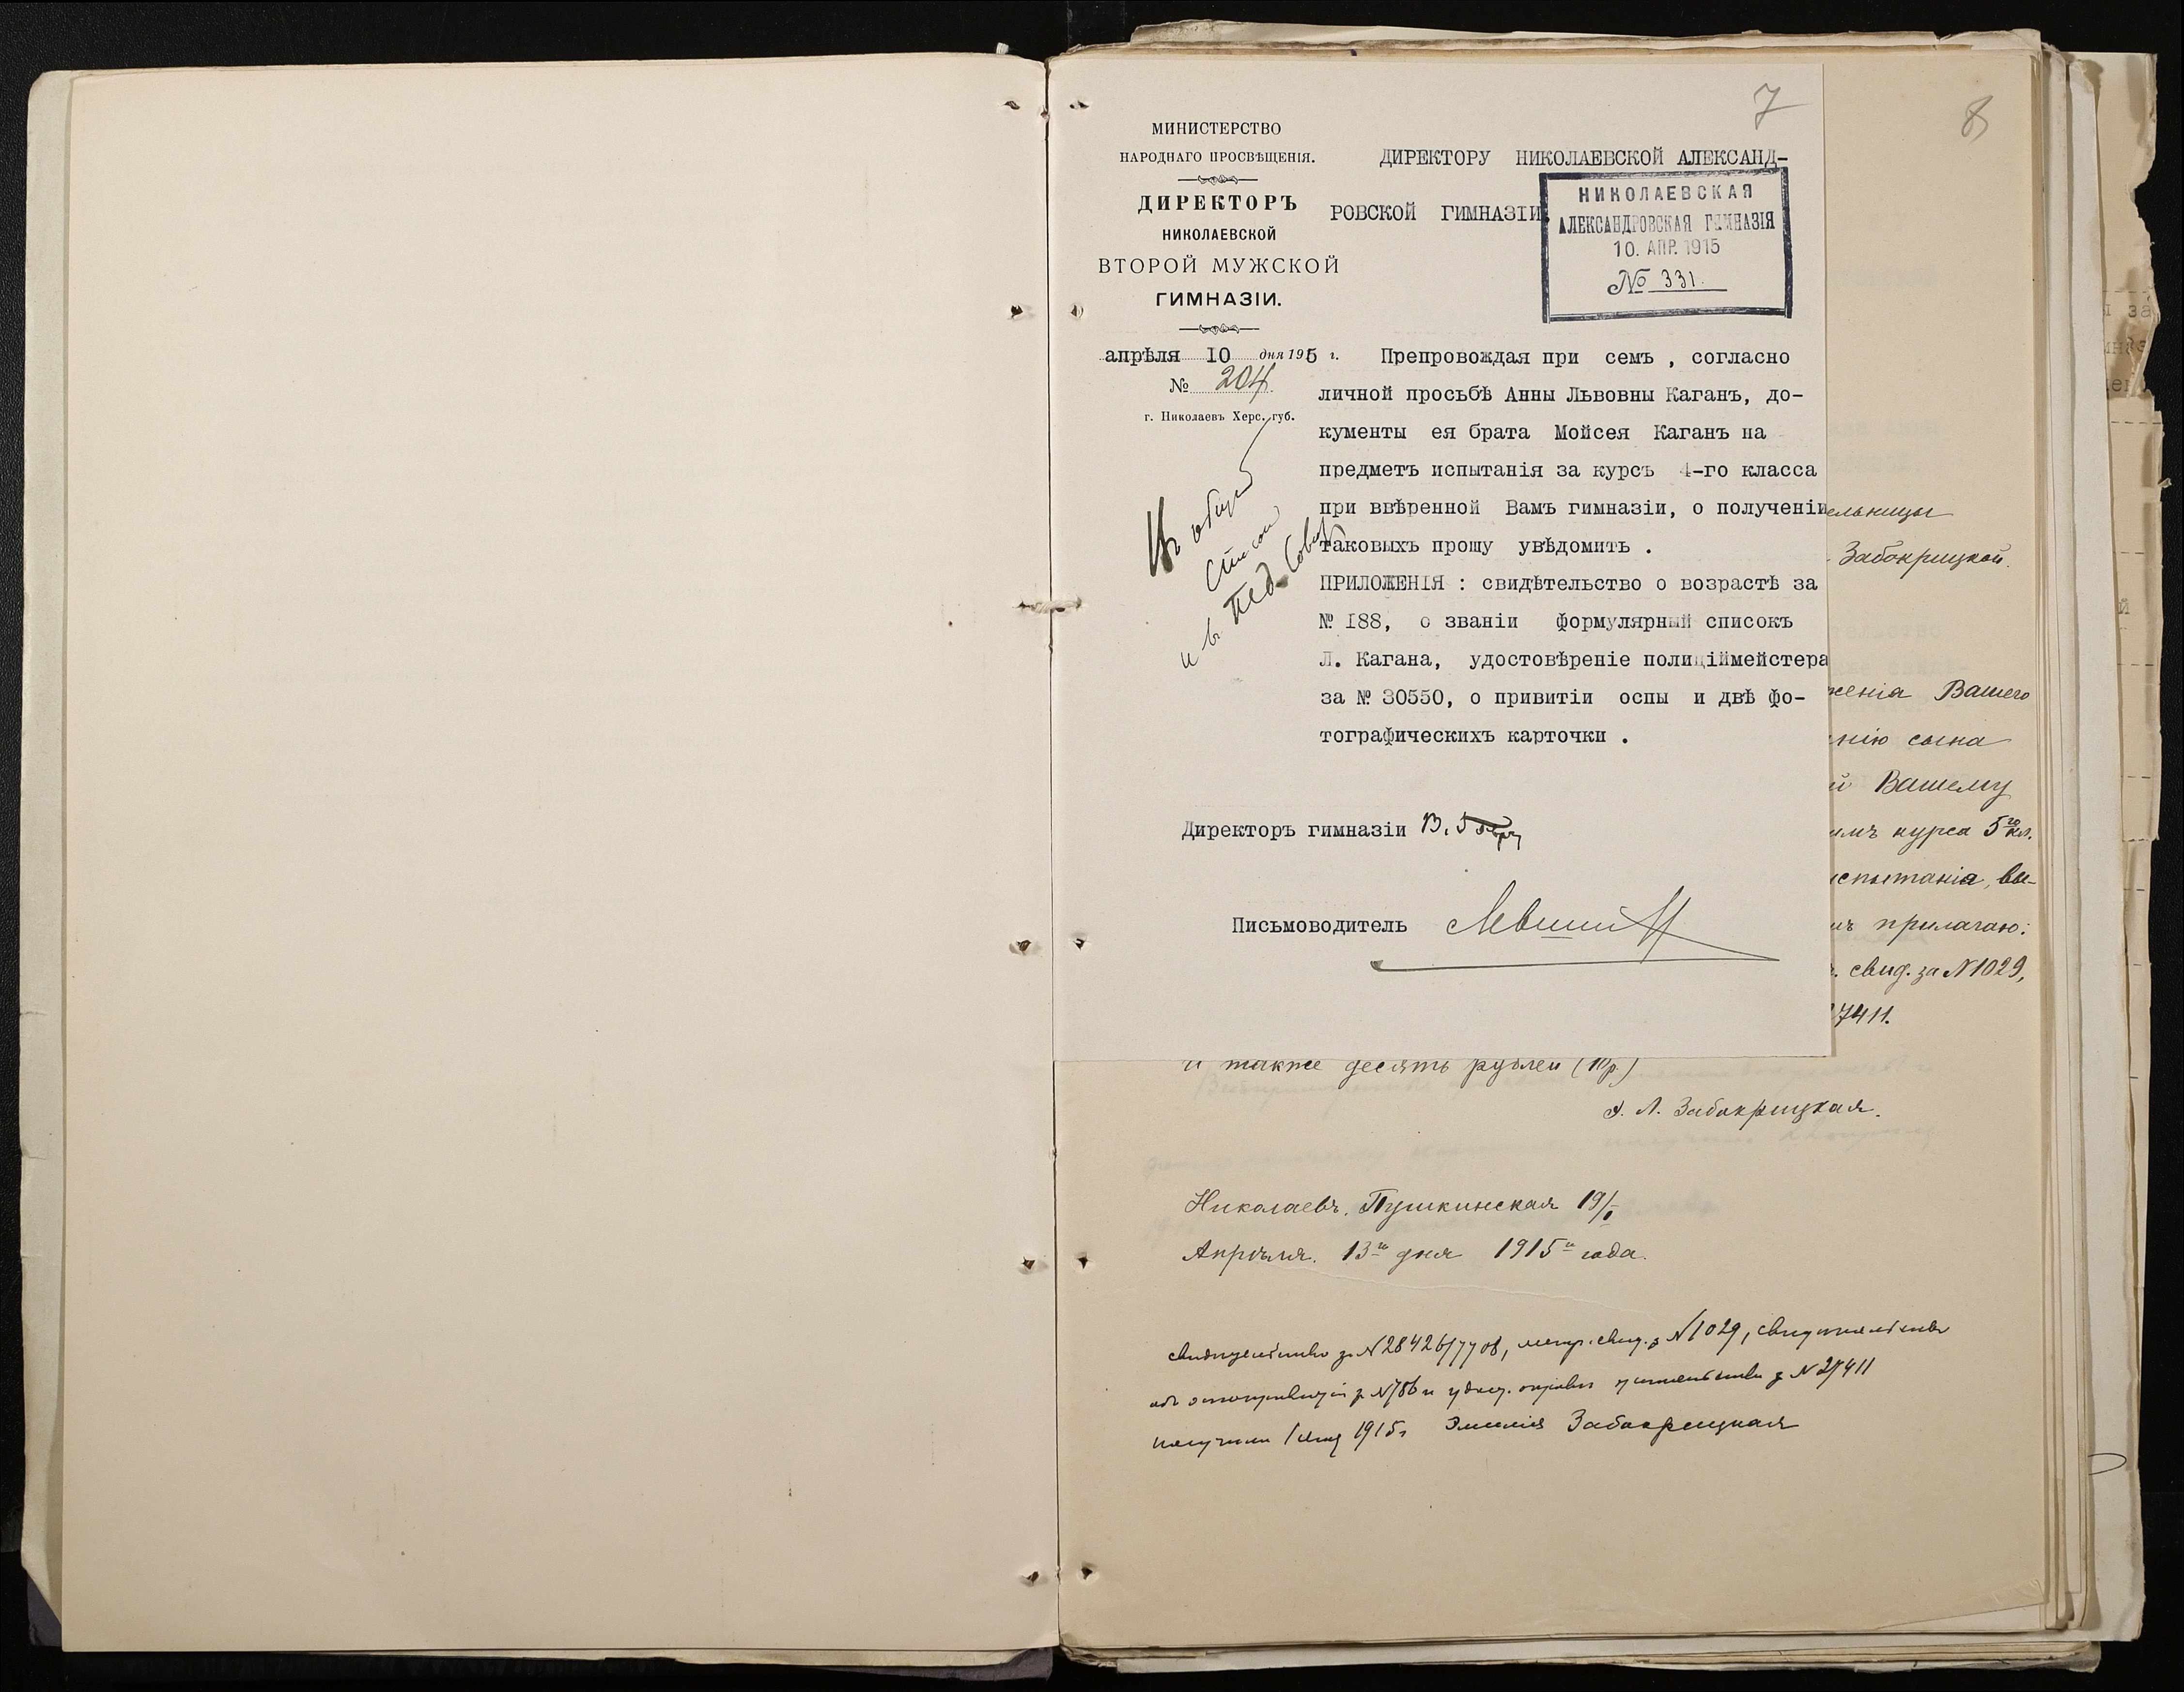 7
8
МИНИСТЕРСТВО
НАРОДНАГО ПРОСВѢЩЕНІЯ.
ДИРЕКТОРЪ
НИКОЛАЕВСКОЙ
ВТОРОЙ МУЖСКОЙ
ГИМНАЗІИ.
апрѣля 10 дня 1915 г.
№ 204.
г. Николаевъ Херс. губ.
ДИРЕКТОРУ НИКОЛАЕВСКОЙ АЛЕКСАНД-
РОВСКОЙ ГИМНАЗІИ.
НИКОЛАЕВСКАЯ
АЛЕКСАНДРОВСКАЯ ГИМНАЗІЯ
10. АПР. 1915
№ 331.
Препровождая при семъ , согласно
личной просьбѣ Анны Львовны Каганъ, до-
кументы ея брата Мойсея Каганъ на
предметъ испытанія за курсъ 4-го класса
при ввѣренной Вамъ гимназіи, о полученіи
таковыхъ прошу увѣдомить .
ПРИЛОЖЕНІЯ : свидѣтельство о возрастѣ за
№ 188, о званіи формулярный списокъ
Л. Кагана, удостовѣреніе полиціймейстера
за № 30550, о привитіи оспы и двѣ фо-
тографическихъ карточки .
Въ общій
списокъ
и въ Пед. Совѣтъ
Директоръ гимназіи В.
Письмоводитель
ельницы
Забокрицкой.
женія Вашего
нію сына
й Вашему
курса 5го кл.
испытанія, вы-
прилагаю:
свид. за №1029,
7411.
и также десять рублей (10р.)
Л. Забокрицкая.
Николаевъ. Пушкинская 19/
Апрѣля. 13го дня 1915го года.
свидѣтельство за №28426/7708, метр. свид. за №1029, свидѣтельство
объ оспопрививаніи за №786 и за №27411
получила 1915г Эмилія Забокрицкая